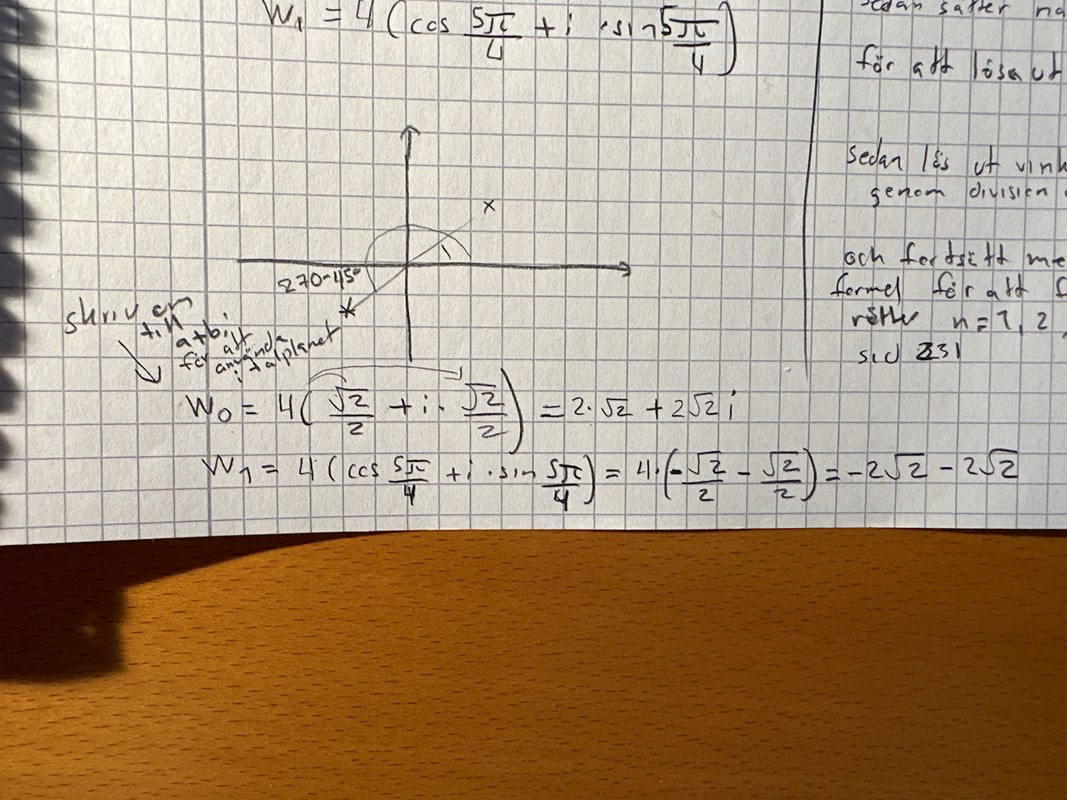 W₁ = 4 (cos 5π/4 + i · sin 5π/4)
270-45°
skriv om
till
a+bi
för att
använda
i talplanet
W₀ = 4( √2/2 + i · √2/2 ) = 2·√2 + 2√2 i
W₁ = 4 (cos 5π/4 + i · sin 5π/4) = 4·(-√2/2 - √2/2) = -2√2 - 2√2
sedan sätter
för att lösa ut
sedan lös ut vink
genom division
och fortsätt me
formel för att
n=1, 2
sid 231